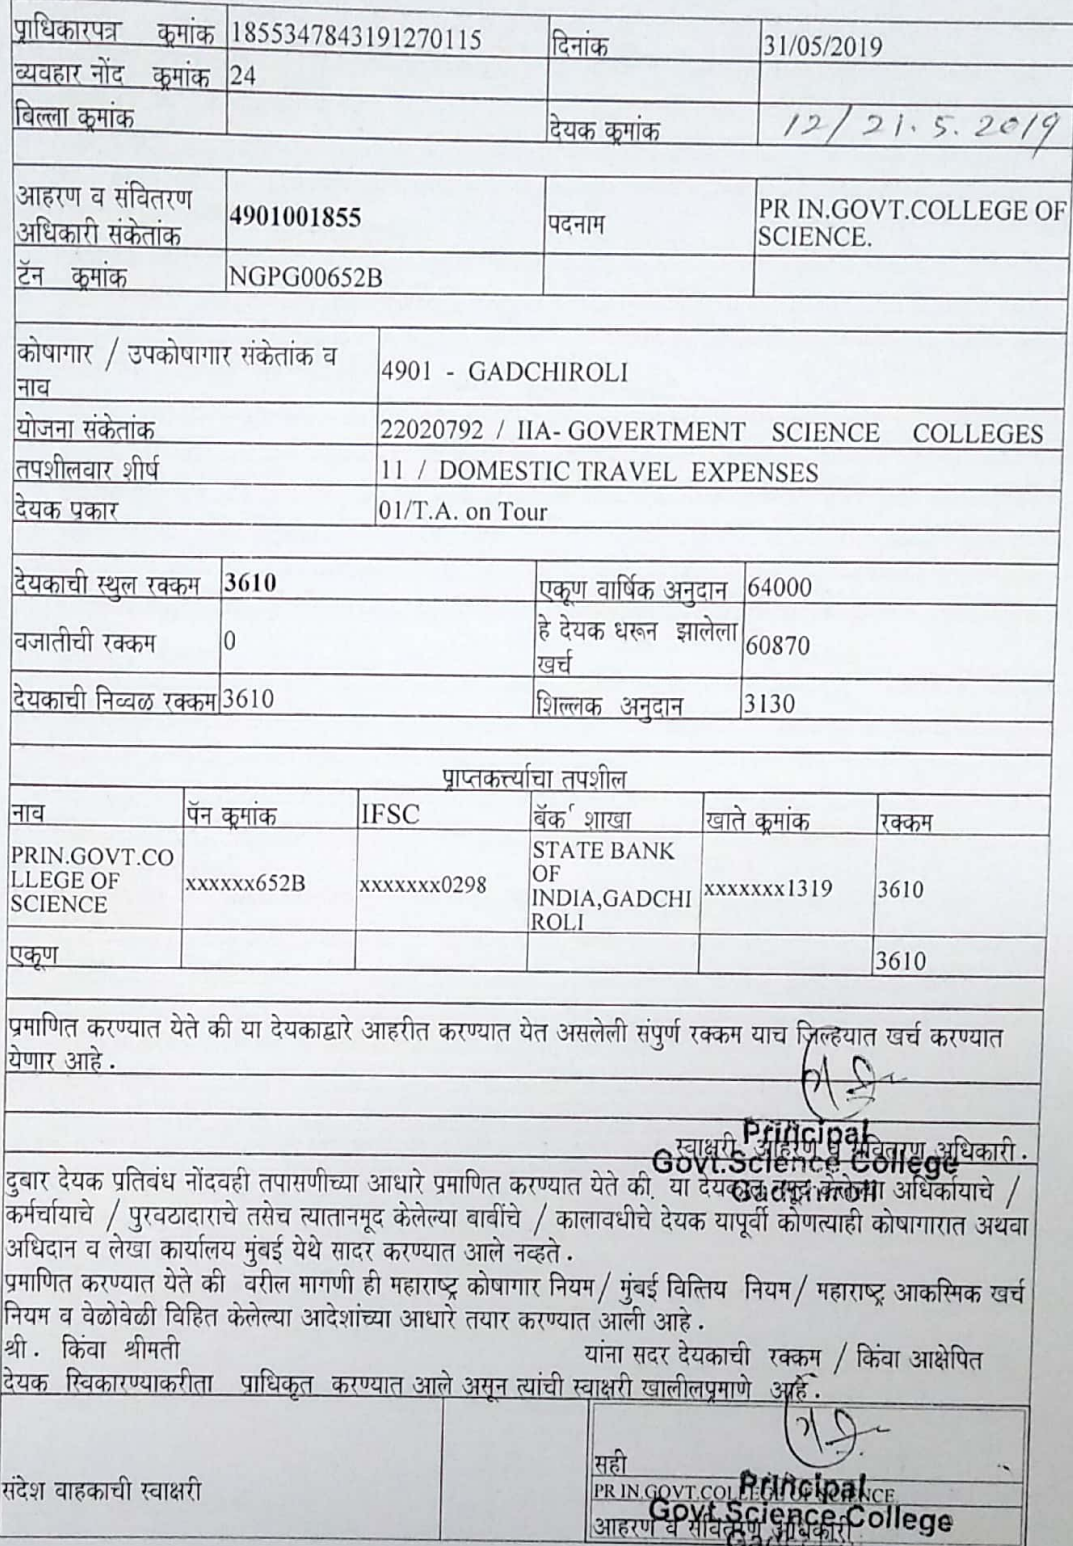 प्राधिकारपत्र क्रमांक 1855347843191270115 दिनांक 31/05/2019
व्यवहार नोंद क्रमांक 24
बिल्ला क्रमांक देयक क्रमांक 12/21.5.2019
आहरण व संवितरण अधिकारी संकेतांक 4901001855 पदनाम PR IN.GOVT.COLLEGE OF SCIENCE.
टॅन क्रमांक NGPG00652B
कोषागार / उपकोषागार संकेतांक व नाव 4901 - GADCHIROLI
योजना संकेतांक 22020792 / IIA- GOVERTMENT SCIENCE COLLEGES
तपशीलवार शीर्ष 11 / DOMESTIC TRAVEL EXPENSES
देयक प्रकार 01/T.A. on Tour
देयकाची स्थुल रक्कम 3610 एकूण वार्षिक अनुदान 64000
वजातीची रक्कम 0 हे देयक धरून झालेला खर्च 60870
देयकाची निव्वळ रक्कम 3610 शिल्लक अनुदान 3130
प्राप्तकर्त्याचा तपशील
नाव पॅन क्रमांक IFSC बॅंक शाखा खाते क्रमांक रक्कम
PRIN.GOVT.COLLEGE OF SCIENCE xxxxxx652B xxxxxxx0298 STATE BANK OF INDIA,GADCHIROLI xxxxxxx1319 3610
एकूण 3610
प्रमाणित करण्यात येते की या देयकाद्वारे आहरीत करण्यात येत असलेली संपुर्ण रक्कम याच जिल्हयात खर्च करण्यात
येणार आहे.
स्वाक्षरी आहरण व संवितरण अधिकारी.
Principal
Govt.Science College
Gadchiroli
दुबार देयक प्रतिबंध नोंदवही तपासणीच्या आधारे प्रमाणित करण्यात येते की, या देयकात नमूद केलेल्या अधिकार्याचे /
कर्मचार्याचे / पुरवठादाराचे तसेच त्यातानमूद केलेल्या बाबींचे / कालावधीचे देयक यापूर्वी कोणत्याही कोषागारात अथवा
अधिदान व लेखा कार्यालय मुंबई येथे सादर करण्यात आले नव्हते.
प्रमाणित करण्यात येते की वरील मागणी ही महाराष्ट्र कोषागार नियम/ मुंबई वित्तिय नियम/ महाराष्ट्र आकस्मिक खर्च
नियम व वेळोवेळी विहित केलेल्या आदेशांच्या आधारे तयार करण्यात आली आहे.
श्री. किंवा श्रीमती यांना सदर देयकाची रक्कम / किंवा आक्षेपित
देयक स्विकारण्याकरीता प्राधिकृत करण्यात आले असून त्यांची स्वाक्षरी खालीलप्रमाणे आहे.
सही
संदेश वाहकाची स्वाक्षरी
PR IN.GOVT.COLLEGE OF SCIENCE.
आहरण व संवितरण अधिकारी
Principal
Govt.Science College